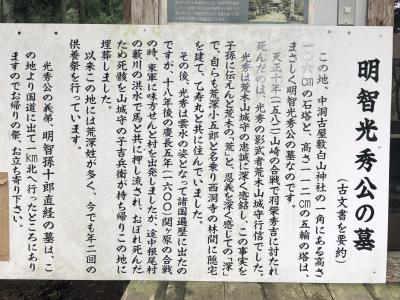 明智光秀公の墓
(古文書を要約)
この地、中洞古屋敷白山神社の一角にある高さ
㎝の石塔と、高さ一一二㎝の五輪の塔は、
まさしく明智光秀公の墓なのです。
天正十年(一五八二)山崎の合戦で羽柴秀吉に討たれ
死んだのは、光秀の影武者荒木山城守行信でした。
光秀は荒木山城守の忠誠に深く感銘し、この事実を
子孫に伝えんと荒木の「荒」と、恩義を深く感じての「深」
で、自らを荒深小五郎と名乗り西洞寺の林間に隠宅
を建て、乙寿丸と共に住んでいました。
その後、光秀は雲水の姿となって諸国遍歴に出たの
ですが、十八年後の慶長五年(一六〇〇)関ヶ原の合戦
の時、東軍に味方せんと村を出発しましたが、途中根尾村
の薮川の洪水で馬と共に押し流され、おぼれ死んだ
ため死骸を山城守の子吉兵衛が持ち帰りこの地に
埋葬しました。
以来この地には荒深姓が多く、今でも年二回の
供養祭を行っています。
光秀公の義弟、明智孫十郎直経の墓は、こ
の地より国道に出て一km北へ行ったところにあり
ますのでお帰りの祭、お立ち寄り下さい。